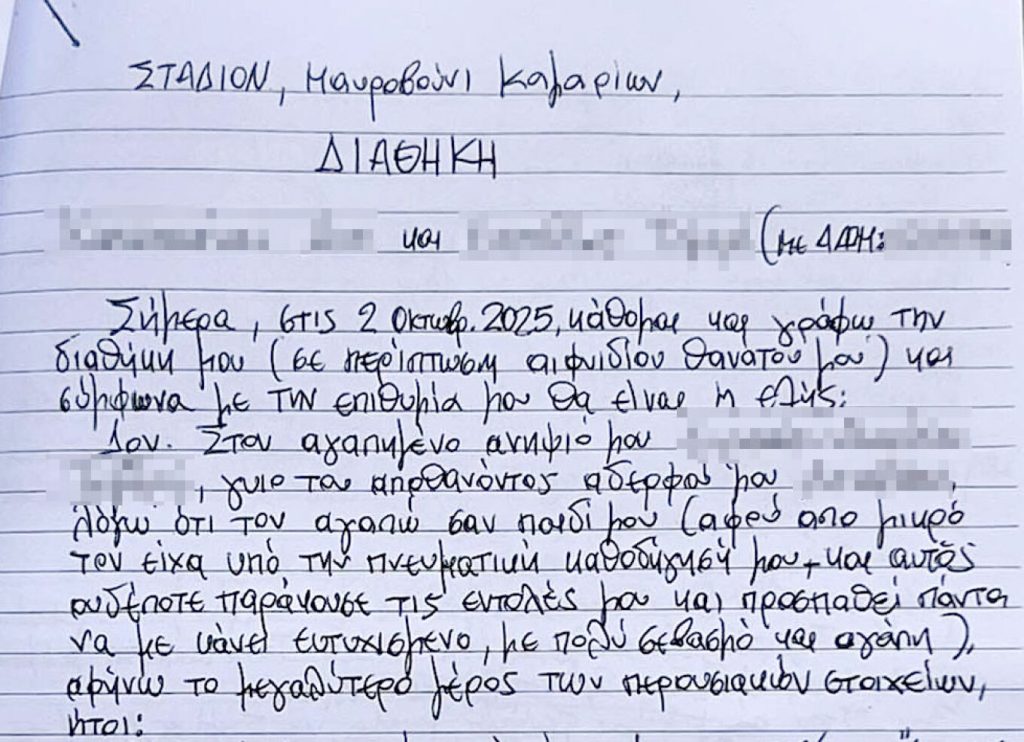 ΣΤΑΔΙΟΝ, Μαυροβούνι Καμαρίων,
ΔΙΑΘΗΚΗ
και (με ΑΦΜ:
Σήμερα, στις 2 Οκτωβρ. 2025, κάθομαι και γράφω την
διαθήκη μου (σε περίπτωση αιφνιδίου θανάτου μου) και
σύμφωνα με την επιθυμία μου θα είναι η εξής:
1ον. Στον αγαπημένο ανηψιό μου
, γυιο του αποθανόντος αδερφού μου ,
λόγω ότι τον αγαπώ σαν παιδί μου (αφού απο μικρό
τον είχα υπό την πνευματική καθοδήγησή μου + και αυτός
ουδέποτε παράκουσε τις εντολές μου και προσπαθεί πάντα
να με κάνει ευτυχισμένο, με πολύ σεβασμό και αγάπη),
αφήνω το μεγαλύτερο μέρος των περουσιακών στοιχείων,
ήτοι: